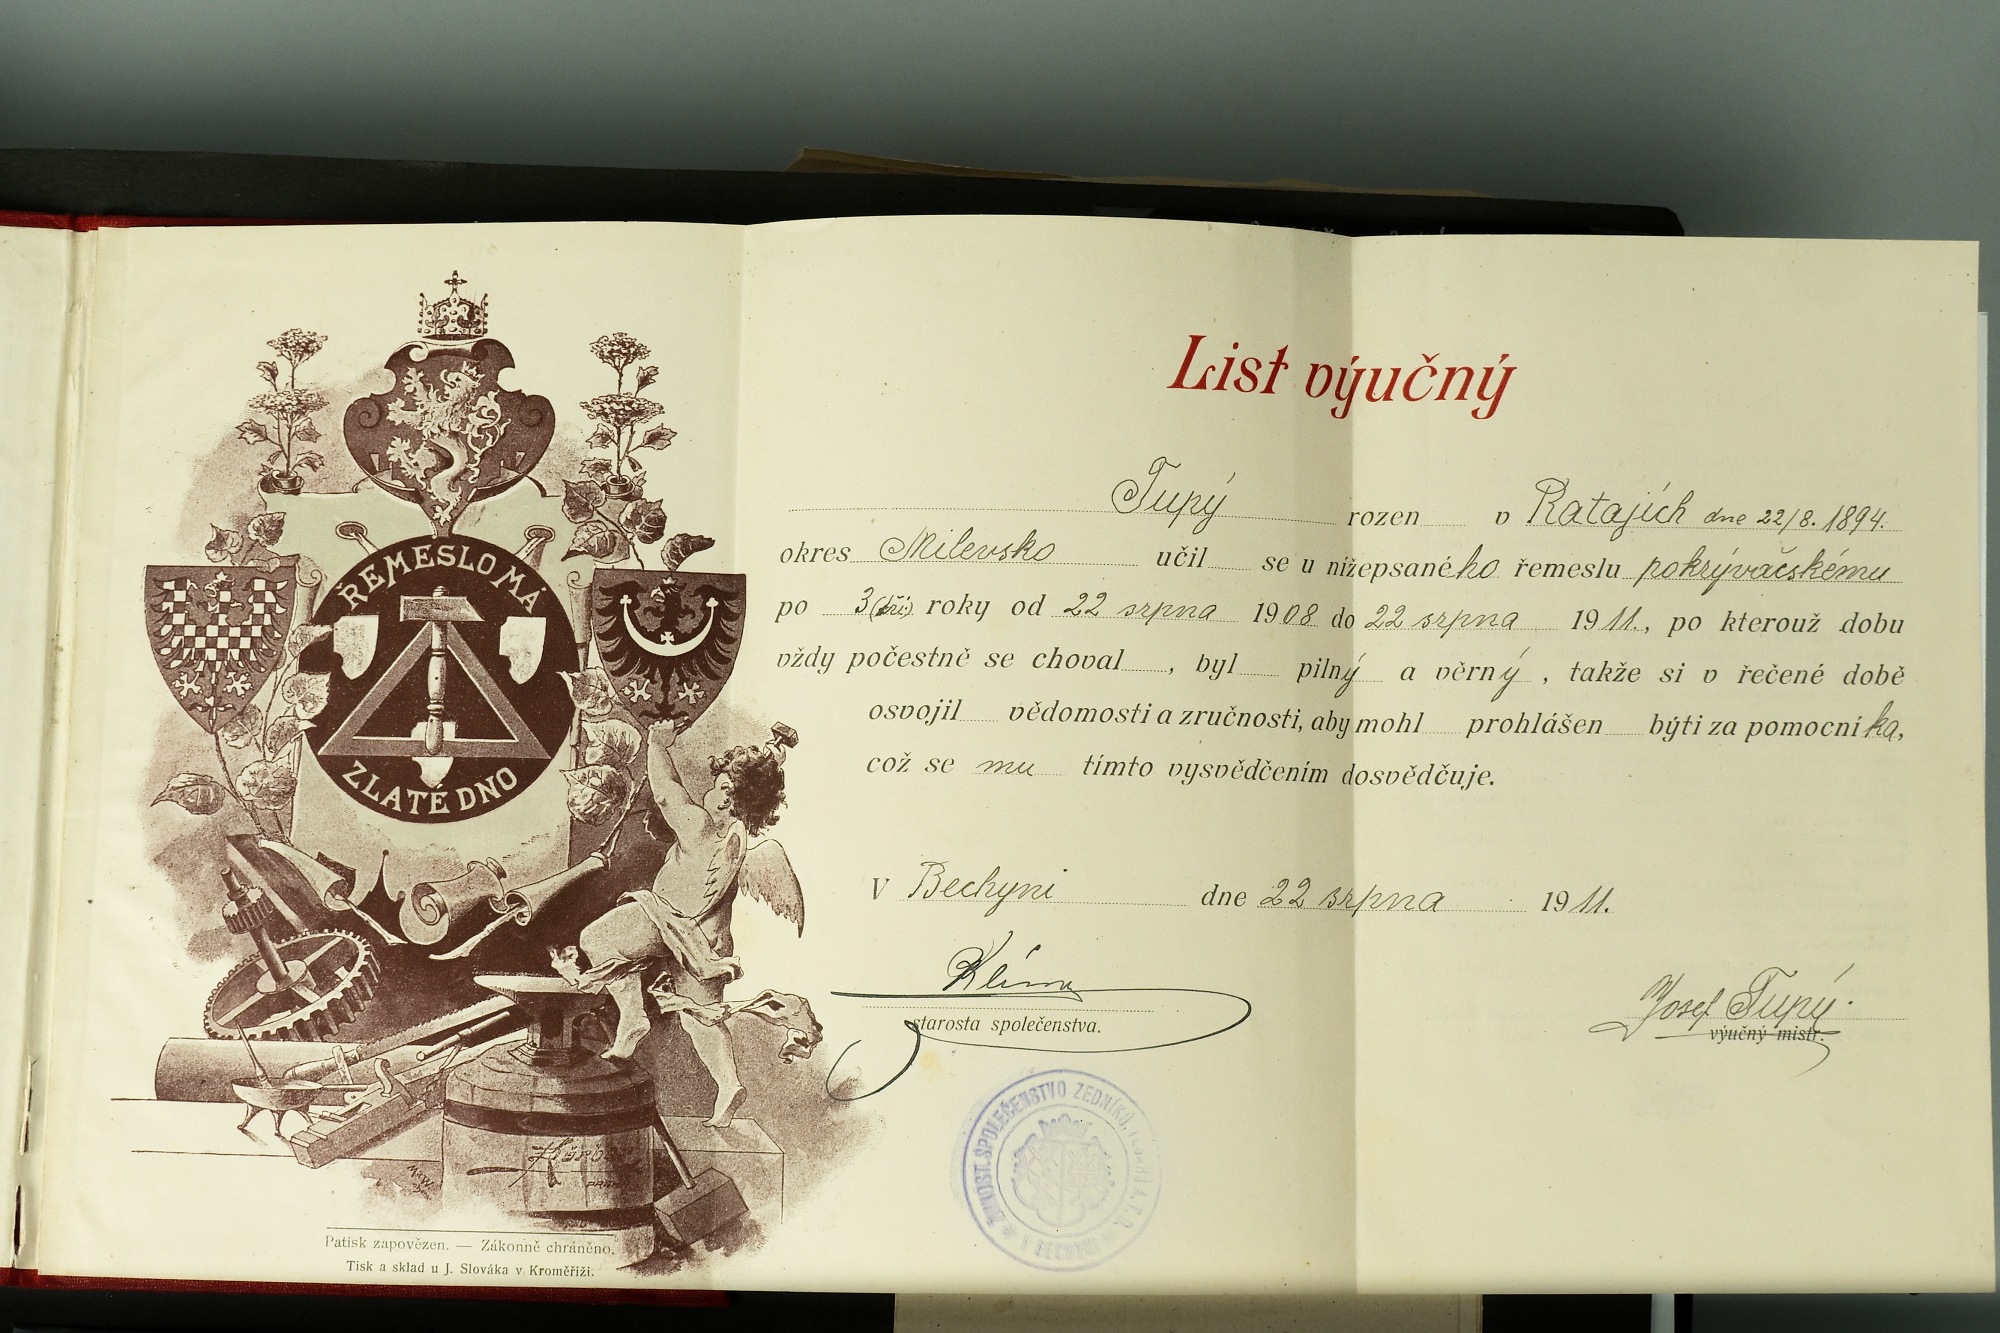 ŘEMESLO MÁ
ZLATÉ DNO
Patisk zapovězen. — Zákonně chráněno.
Tisk a sklad u J. Slováka v Kroměříži.
List výučný
Tupý rozen v Ratajích dne 22/8. 1894.
okres Milevsko učil se u nížepsaného řemeslu pokrývačskému
po 3 (tři) roky od 22 srpna 1908 do 22 srpna 1911., po kterouž dobu
vždy počestně se choval, byl pilný a věrný, takže si v řečené době
osvojil vědomosti a zručnosti, aby mohl prohlášen býti za pomocníka,
což se mu tímto vysvědčením dosvědčuje.
V Bechyni dne 22 srpna 1911.
Klíma
starosta společenstva.
Josef Tupý.
výučný mistr.
ŽIVNOST. SPOLEČENSTVO ZEDNÍKŮ, A. T. D.
V BECHYNI